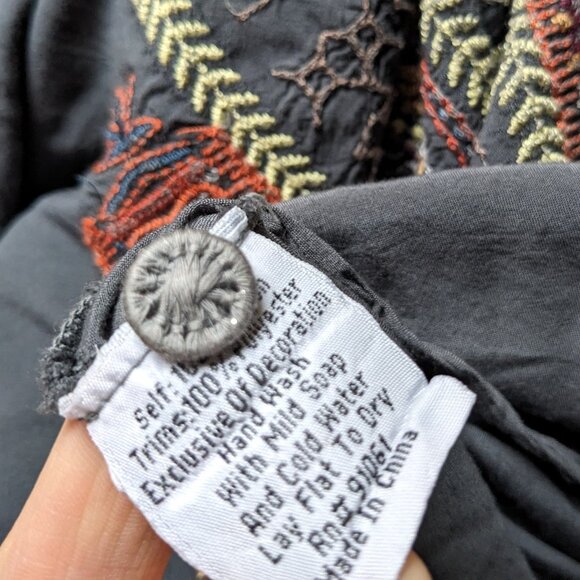 Self:
Trims:100% Polyester
Exclusive Of Decoration
Hand Wash
With Mild Soap
And Cold Water
Lay Flat To Dry
Rn# 91061
Made In China